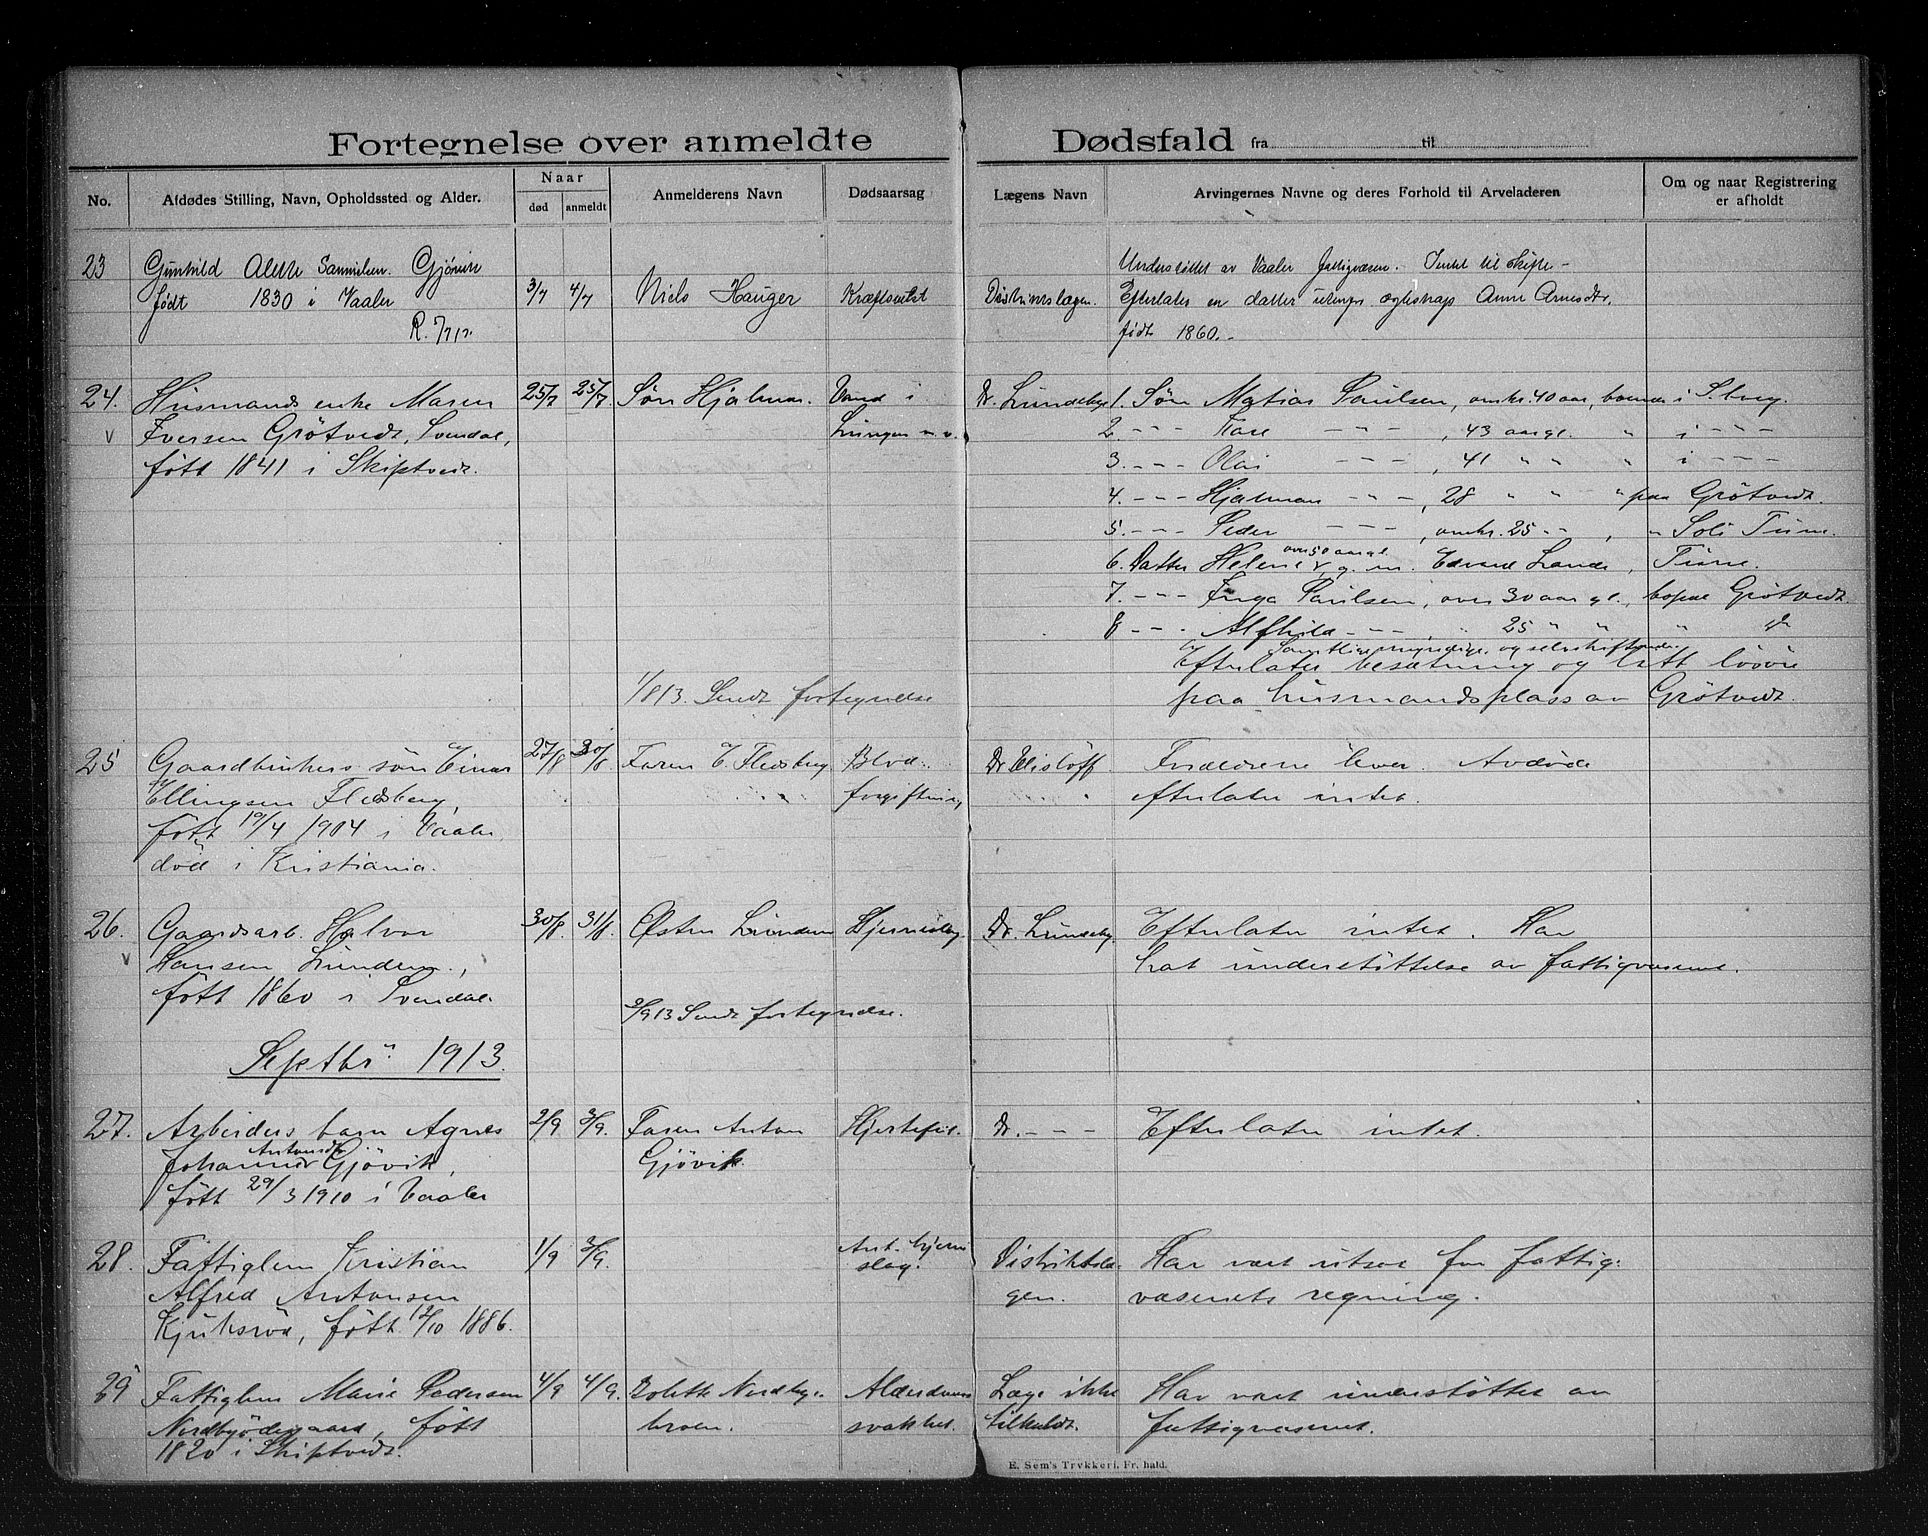 Fortegnelse over anmeldte Dødsfald fra til
No.
Afdødes Stilling, Navn, Opholdssted og Alder.
Naar
død
anmeldt
Anmelderens Navn
Dødsaarsag
Lægens Navn
Arvingernes Navne og deres Forhold til Arveladeren
Om og naar Registrering
er afholdt
23
Gunhild Alette Samuelsen. Gjörvik
født 1830 i Vaaler
3/7 4/7
Niels Hauger
Kræftsvulst
Distriktslægen.
Understöttet av Vaaler fattigvæsen. Intet til skifte -
Efterlater en datter utenfor ægteskap Anne Arnesdtr.
født 1860. -
24.
Husmands enke Maren
Iversen Grötvedt, Svendal,
född 1841 i Skiptvedt.
25/7 25/7
Søn Hjalmar.
Vand i
Lungen m.v.
Dr. Lundeby
1. Søn Matias Paulsen, omkr. 40 aar, boende i
2. - - - Kare - - - , 43 aar gl. " i - - -
3. - - - Olai - - - , 41 " " " i - - -
4. - - - Hjalmar - - - , 28 " " " paa Grötvedt.
5. - - - Peder - - - , omkr. 25 " , " Soli Tune.
over 50 aar gl.
6. Datter Helene g. m. Edvard Lande, Tune.
7. - - - Inga Paulsen, over 30 aar gl., bopæl Grötvedt.
8 - - - Alfhild - - - , " 25 " " " do
Samtlige myndige og selvskiftende
Efterlater besætning og litt lösöre
paa husmandsplass av Grötvedt.
1/8 13. Sendt fortegnelse
25
Gaardbrukers sön Einar
Ellingsen Flesberg,
född 19/4 1904 i Vaaler
död i Kristiania.
27/8 30/8
Faren E. Flesberg
Blod-
forgiftning
Dr Elislöff
Forældrene lever. Avdöde
efterlater intet.
26.
Gaardsarb. Halvor
Hansen Lunden.,
född 1860 i Svendal
30/8. 31/8.
Østen Lunden
Hjerneslag
Dr. Lundeby
Efterlater intet. Har
hat understöttelse av fattigvæsenet.
2/9 13 Sendt fortegnelse.
Septbr 1913.
27.
Arbeiders barn Agnes
Antonsdtr
Johanne Gjövik,
född 29/3 1910 i Vaaler
2/9 3/9.
Faren Anton
Gjövik.
Hjertefeil.
Dr. - - -
Efterlater intet.
28.
Fattiglem Kristian
Alfred Antonsen
Kjuksröd, född 12/10 1886.
1/9 3/9.
Ant. hjerne
slag.
Distriktslæ-
gen.
Har vært utsat for fattig-
væsenets regning.
29
Fattiglem Marie Pedersen
Nordbyödegaard, född
1820 i Skiptvedt.
4/9 4/9.
Bolette Nordby-
broen.
Alderdoms
svakhet.
Læge ikke
tilkaldt.
Har vært understöttet av
fattigvæsenet.
E. Sem's Trykkeri. Fr. hald.